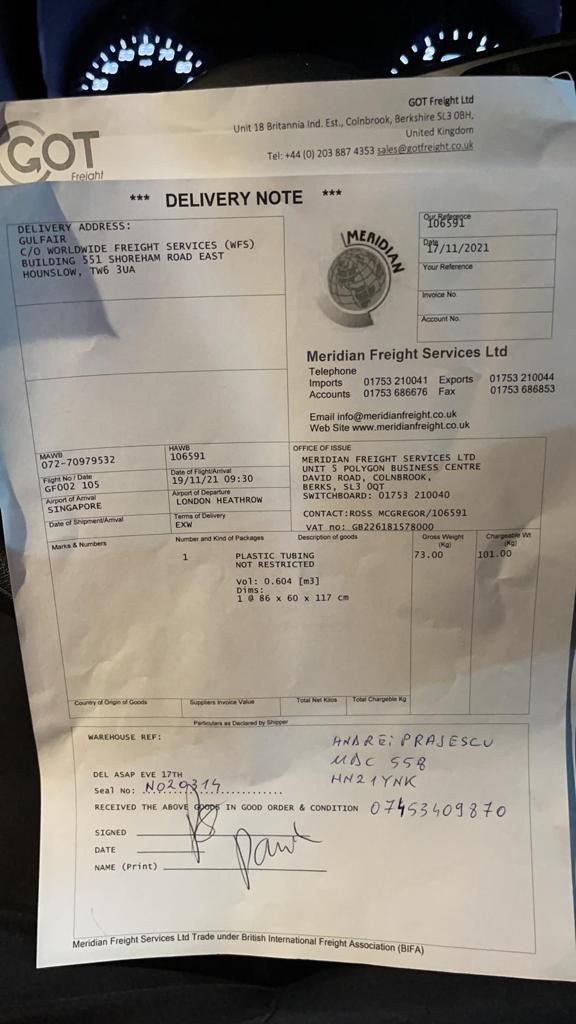 GOT
Freight
GOT Freight Ltd
Unit 18 Britannia Ind. Est., Colnbrook, Berkshire SL3 0BH,
United Kingdom
Tel: +44 (0) 203 887 4353 sales@gotfreight.co.uk
*** DELIVERY NOTE ***
DELIVERY ADDRESS:
GULFAIR
C/O WORLDWIDE FREIGHT SERVICES (WFS)
BUILDING 551 SHOREHAM ROAD EAST
HOUNSLOW, TW6 3UA
MERIDIAN
Our Reference
106591
Date
17/11/2021
Your Reference
Invoice No.
Account No.
Meridian Freight Services Ltd
Telephone
Imports 01753 210041 Exports 01753 210044
Accounts 01753 686676 Fax 01753 686853
Email info@meridianfreight.co.uk
Web Site www.meridianfreight.co.uk
MAWB
072-70979532
HAWB
106591
Flight No / Date
GF002 105
Date of Flight/Arrival
19/11/21 09:30
Airport of Arrival
SINGAPORE
Airport of Departure
LONDON HEATHROW
Date of Shipment/Arrival
Terms of Delivery
EXW
OFFICE OF ISSUE
MERIDIAN FREIGHT SERVICES LTD
UNIT 5 POLYGON BUSINESS CENTRE
DAVID ROAD, COLNBROOK,
BERKS, SL3 0QT
SWITCHBOARD: 01753 210040
CONTACT:ROSS MCGREGOR/106591
VAT no: GB226181578000
Marks & Numbers
Number and Kind of Packages
Description of goods
Gross Weight (Kg)
Chargeable Wt (Kg)
1 PLASTIC TUBING 73.00 101.00
NOT RESTRICTED
Vol: 0.604 [m3]
Dims:
1 @ 86 x 60 x 117 cm
Country of Origin of Goods
Suppliers Invoice Value
Total Net Kilos
Total Chargeable Kg
Particulars as Declared by Shipper
WAREHOUSE REF:
ANDREi PRAJESCU
MAC 558
HN21YNK
DEL ASAP EVE 17TH
Seal No: NO29314
RECEIVED THE ABOVE GOODS IN GOOD ORDER & CONDITION 07453409870
SIGNED
DATE
NAME (Print)
Meridian Freight Services Ltd Trade under British International Freight Association (BIFA)